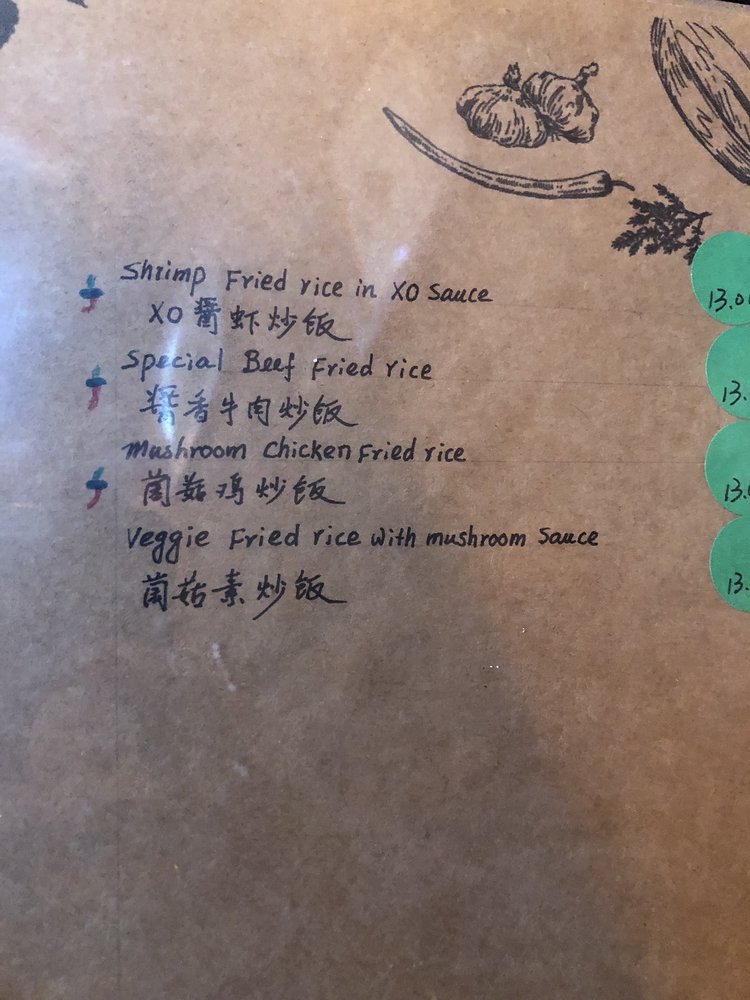 Shrimp Fried rice in XO Sauce
XO醬虾炒饭
13.0
Special Beef Fried rice
醬香牛肉炒饭
13.
mushroom chicken Fried rice
菌菇鸡炒饭
13.
Veggie Fried rice with mushroom Sauce
菌菇素炒饭
13.